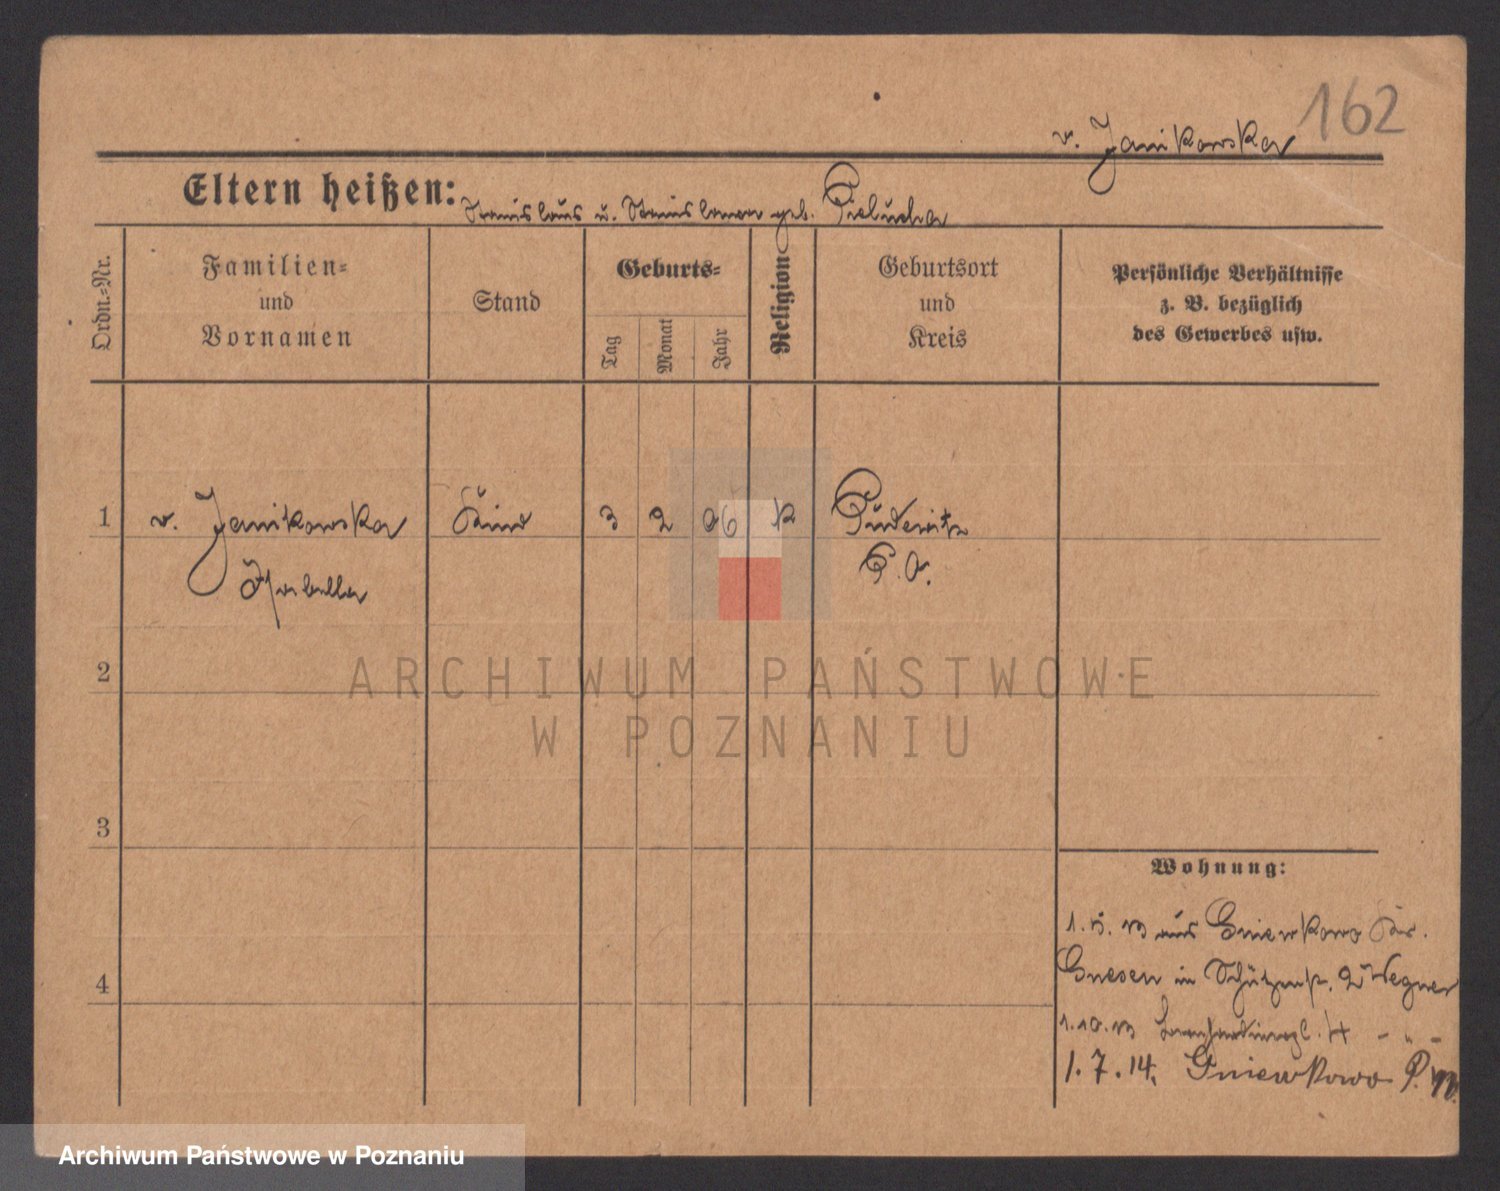 162
v. Janikowska
Eltern heißen: Stanislaus u. Stanislawa geb. Piechucka
Ordn.-Nr.
Familien-
und
Vornamen
Stand
Geburts-
Tag
Monat
Jahr
Religion
Geburtsort
und
Kreis
Persönliche Verhältnisse
z. B. bezüglich
des Gewerbes usw.
1 v. Janikowska Kind 3 2 06 K Pudewitz
Isabella P. O.
2
3
4
Wohnung:
1. 5. 13 aus Gniewkowo Kr.
Gnesen in Schützenstr. 2 Wegner
1.10.13
1.7.14. Gniewkowo
ARCHIWUM PAŃSTWOWE
W POZNANIU
Archiwum Państwowe w Poznaniu